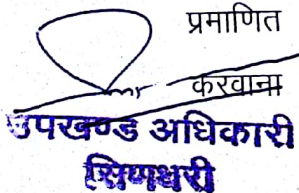 प्रमाणित
करवाना
उपखण्ड अधिकारी
सिणधरी